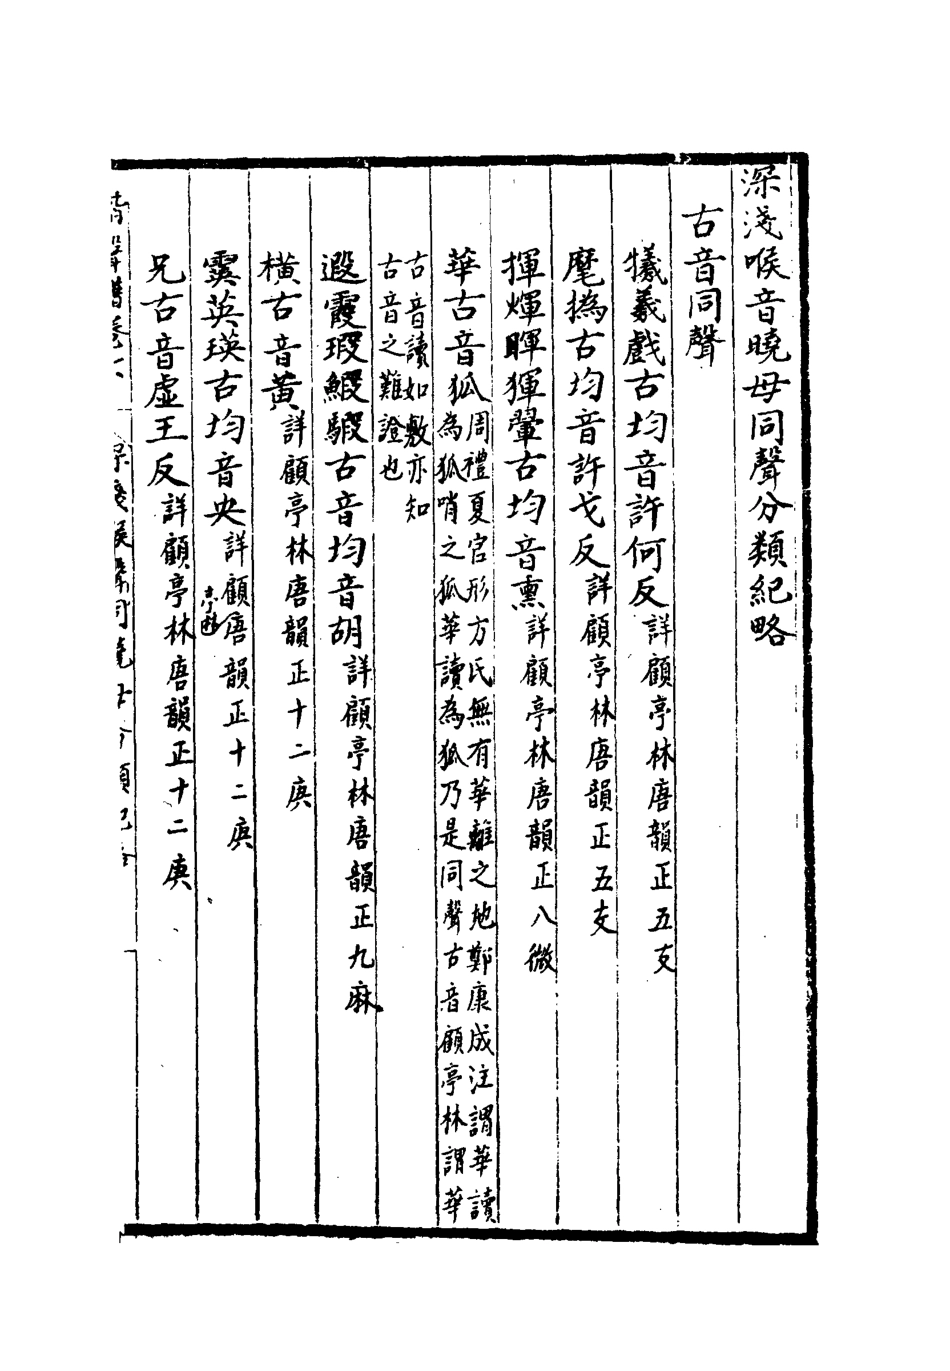 深淺喉音曉母同聲分類紀略
古音同聲
犧羲戲古均音許何反詳顧亭林唐韻正五支
麾撝古均音許戈反詳顧亭林唐韻正五支
揮煇暉㹆翬古均音熏詳顧亭林唐韻正八微
華古音狐周禮夏官形方氏無有華離之地鄭康成注謂華讀
為狐哨之狐華讀為狐乃是同聲古音顧亭林謂華
古音讀如敷亦知
古音之難證也
遐霞瑕鰕騢古音均音胡詳顧亭林唐韻正九麻
橫古音黃詳顧亭林唐韻正十二庚
霙英瑛古均音央詳顧亭林唐韻正十二庚
兄古音虛王反詳顧亭林唐韻正十二庚